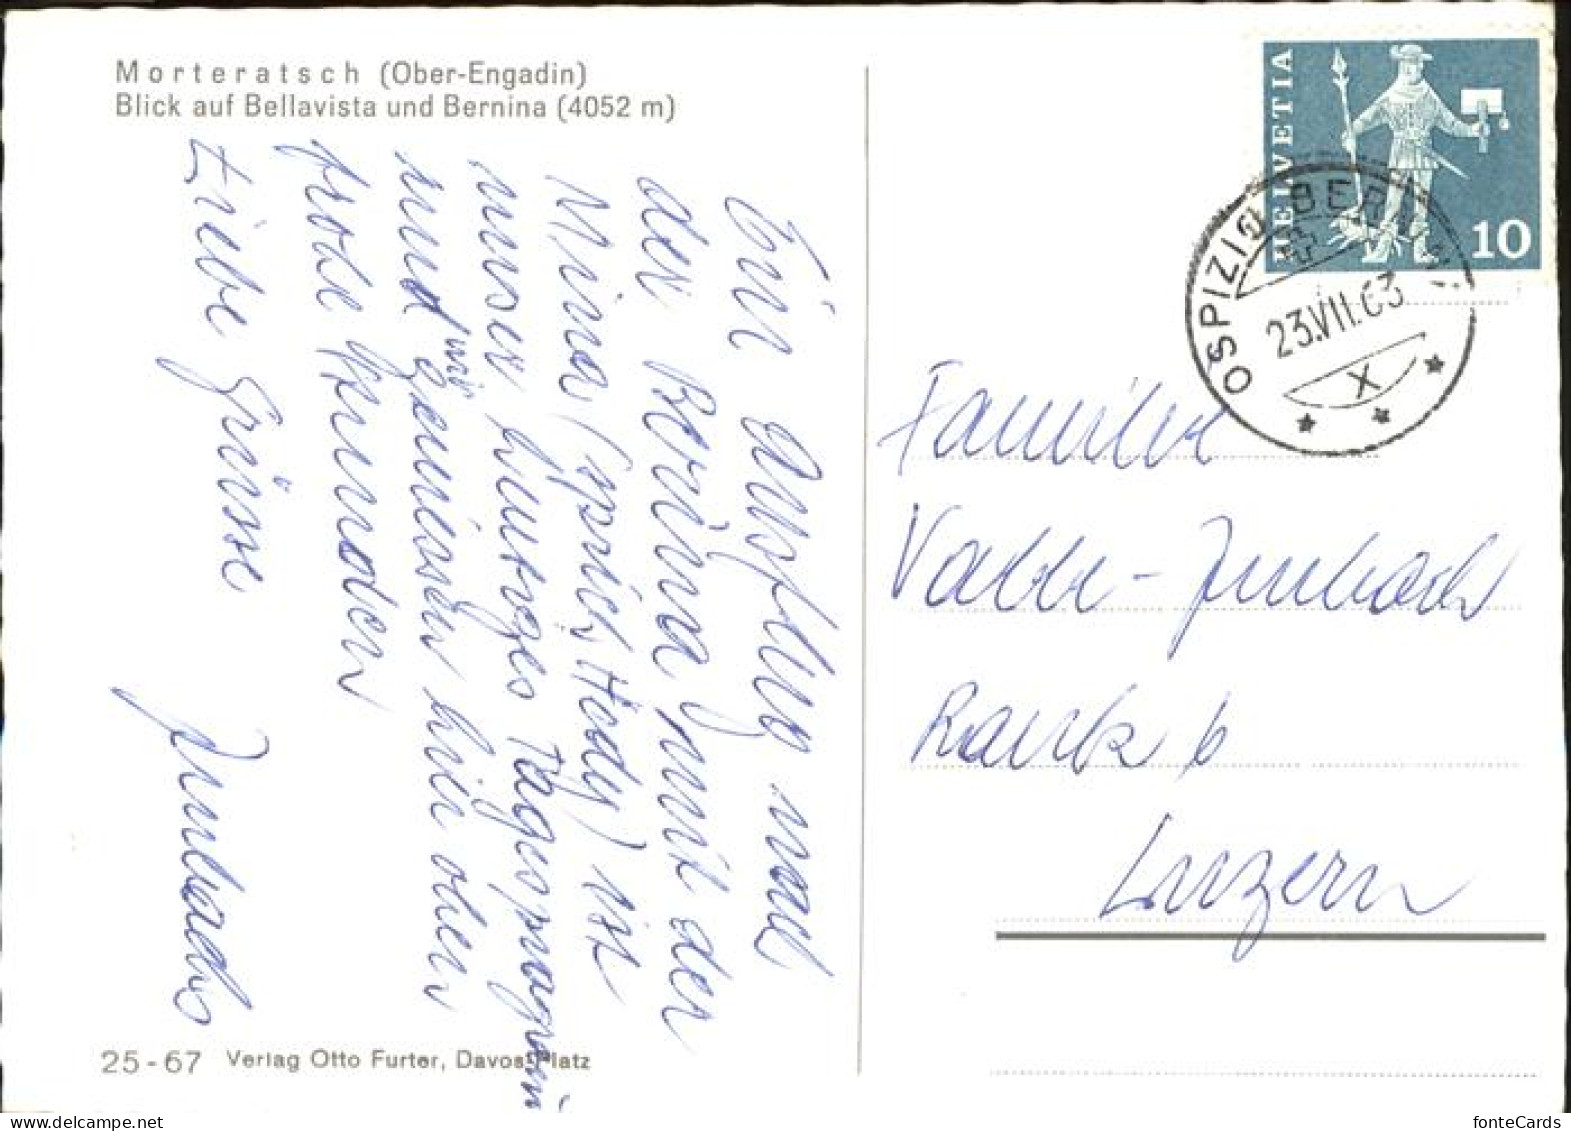 Morteratsch (Ober-Engadin)
Blick auf Bellavista und Bernina (4052 m)
Ein Ausflug nach
der Bernina mit der
Nina (sprich Hady) ist
unser heutiges Tagesprogramm
und wir geniessen hier oben
frohe Stunden
Liebe Grüsse
Jmbach
25-67 Verlag Otto Furter, Davos-Platz
HELVETIA
10
OSPIZIO BERNINA
23.VII.63
X
Familie
-Jmbach
Rank 6
Luzern
fonteCards